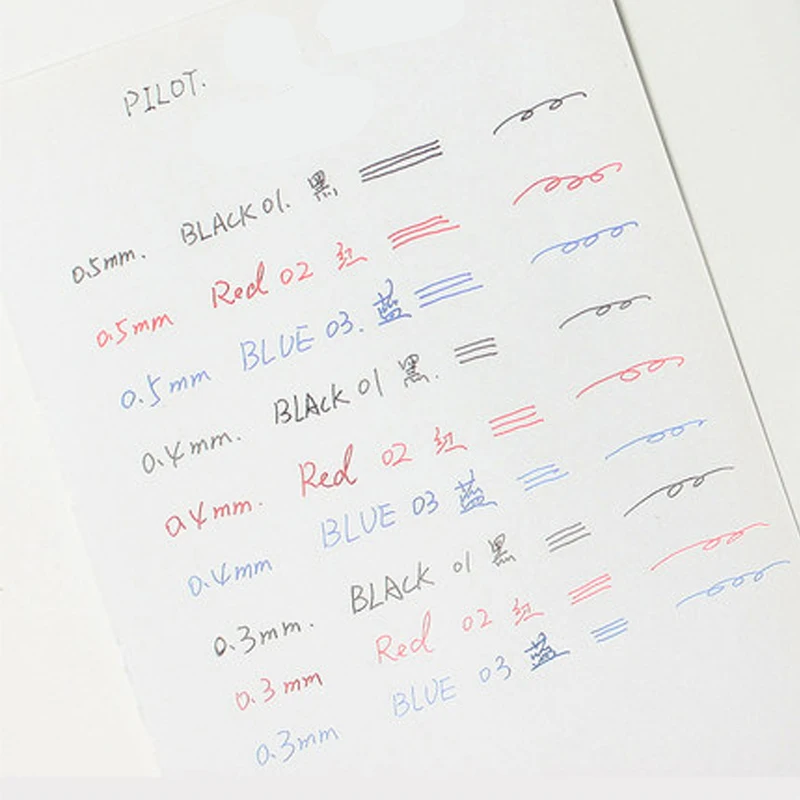 PILOT.
0.5mm. BLACK 01. 黑
0.5mm Red 02 红
0.5mm BLUE 03. 蓝
0.4mm. BLACK 01 黑.
0.4mm. Red 02 红
0.4mm BLUE 03 蓝
0.3mm. BLACK 01 黑
0.3mm Red 02 红
0.3mm BLUE 03 蓝